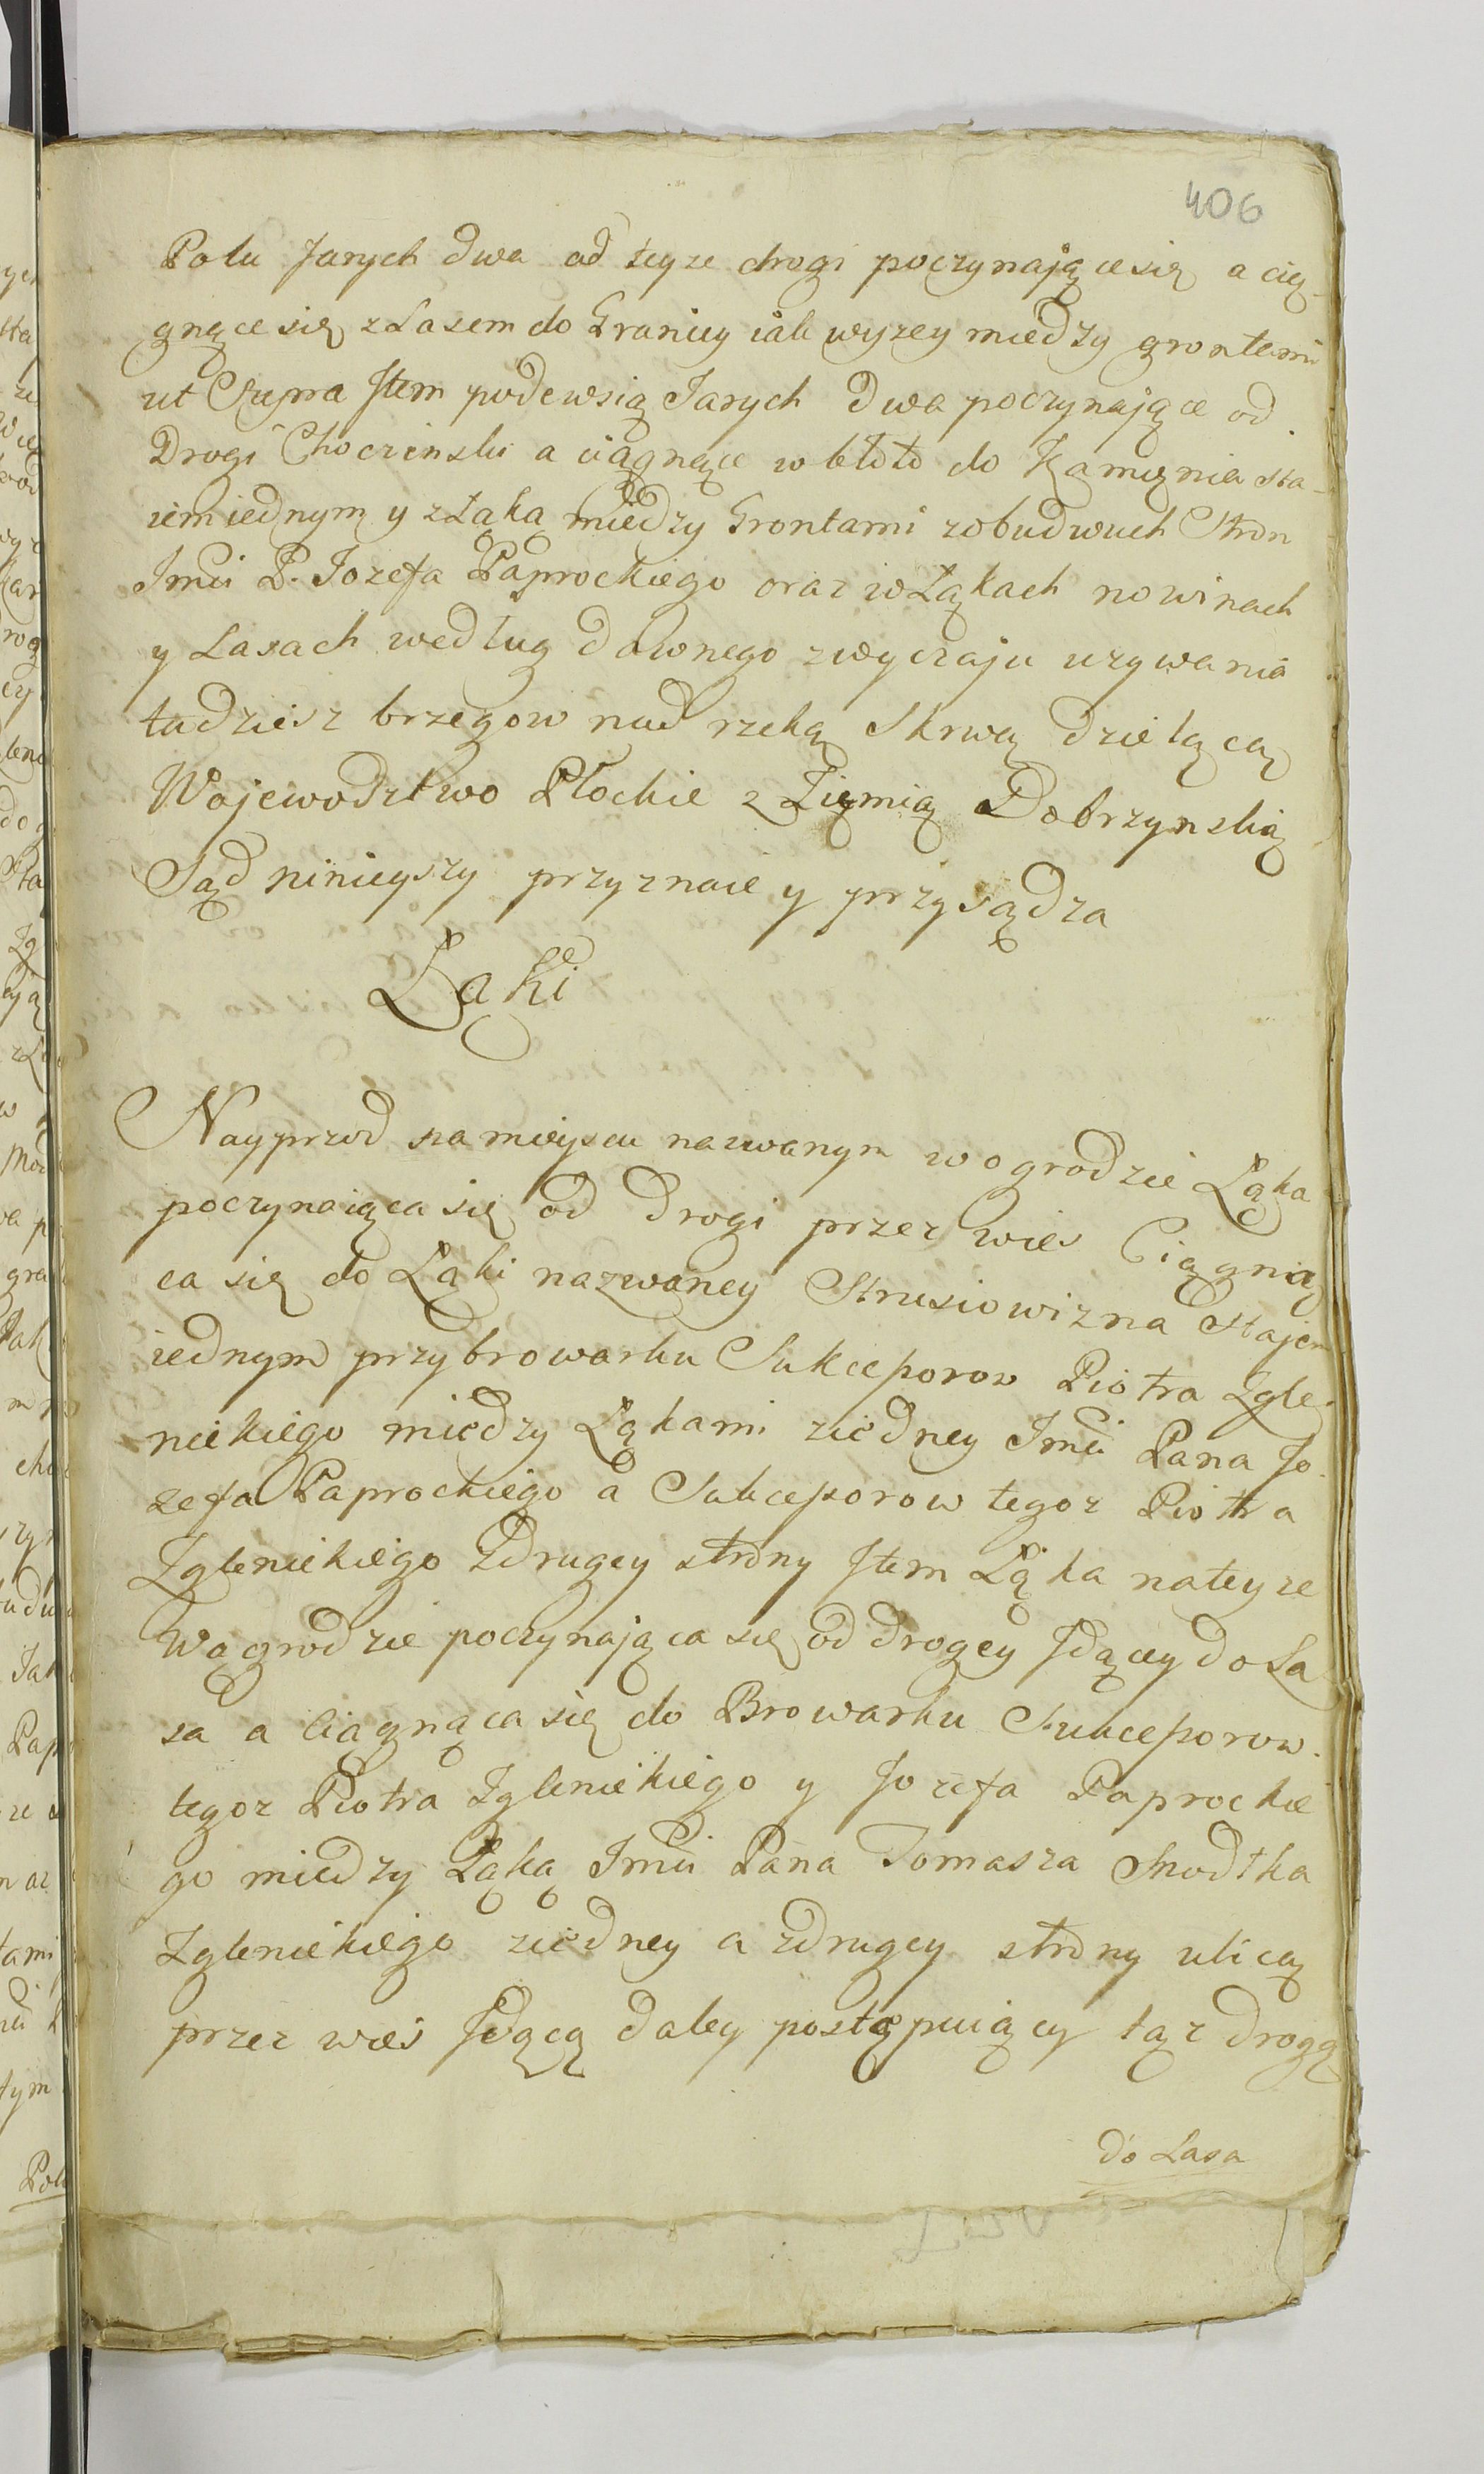 406
Polu Jarych dwa od teyze drogi poczynającesię a cię-
gnącesię z Lasem do Granicy iak wyzey między grontami
ut Supra Item podewsią Jarych dwa poczynające od
Drogi Choczinski a ciągnące w błoto do Kamięnia sta-
iem iednym y z Łąką między Grontami zobudwuch Stron
Jmci P. Jozefa Paprockiego oraz w Łąkach nowinach
y Lasach według dawnego zwyczaju uzywania
tudziesz brzegow nad rzeką Skrwą dzielącą
Wojewodztwo Płockie z Zięmią Dobrzynską
Sąd ninieyszy przyznaie y przysądza
Łąki
Nayprzod na mieyscu nazwanym w ogrodzie Łąka
poczynaiąca się od Drogi przez wies Ciągnią
ca się do Łąki nazwaney Strusiowizna Stajem
iednym przy browarku Sukceßorow Piotra Zgle-
nickiego między Łąkami ziedney Jmci Pana Jo-
zefa Paprockiego a Sukceßorow tegoz Piotra
Zglenickiego zdrugey strony Item Łąka nateyze
Wągrodzie poczynająca się od drogey Idącey do La
sa a ciągnąca się do Browarku Sukceßorow
tegoz Piotra Zglenickiego y Jozefa Paprockie
go między Łąką Jmci Pana Tomasza Snodtka
Zglenickiego ziedney a zdrugey strony ulicą
przez wies Idącą daley postępuiący tąz drogą
do Lasa